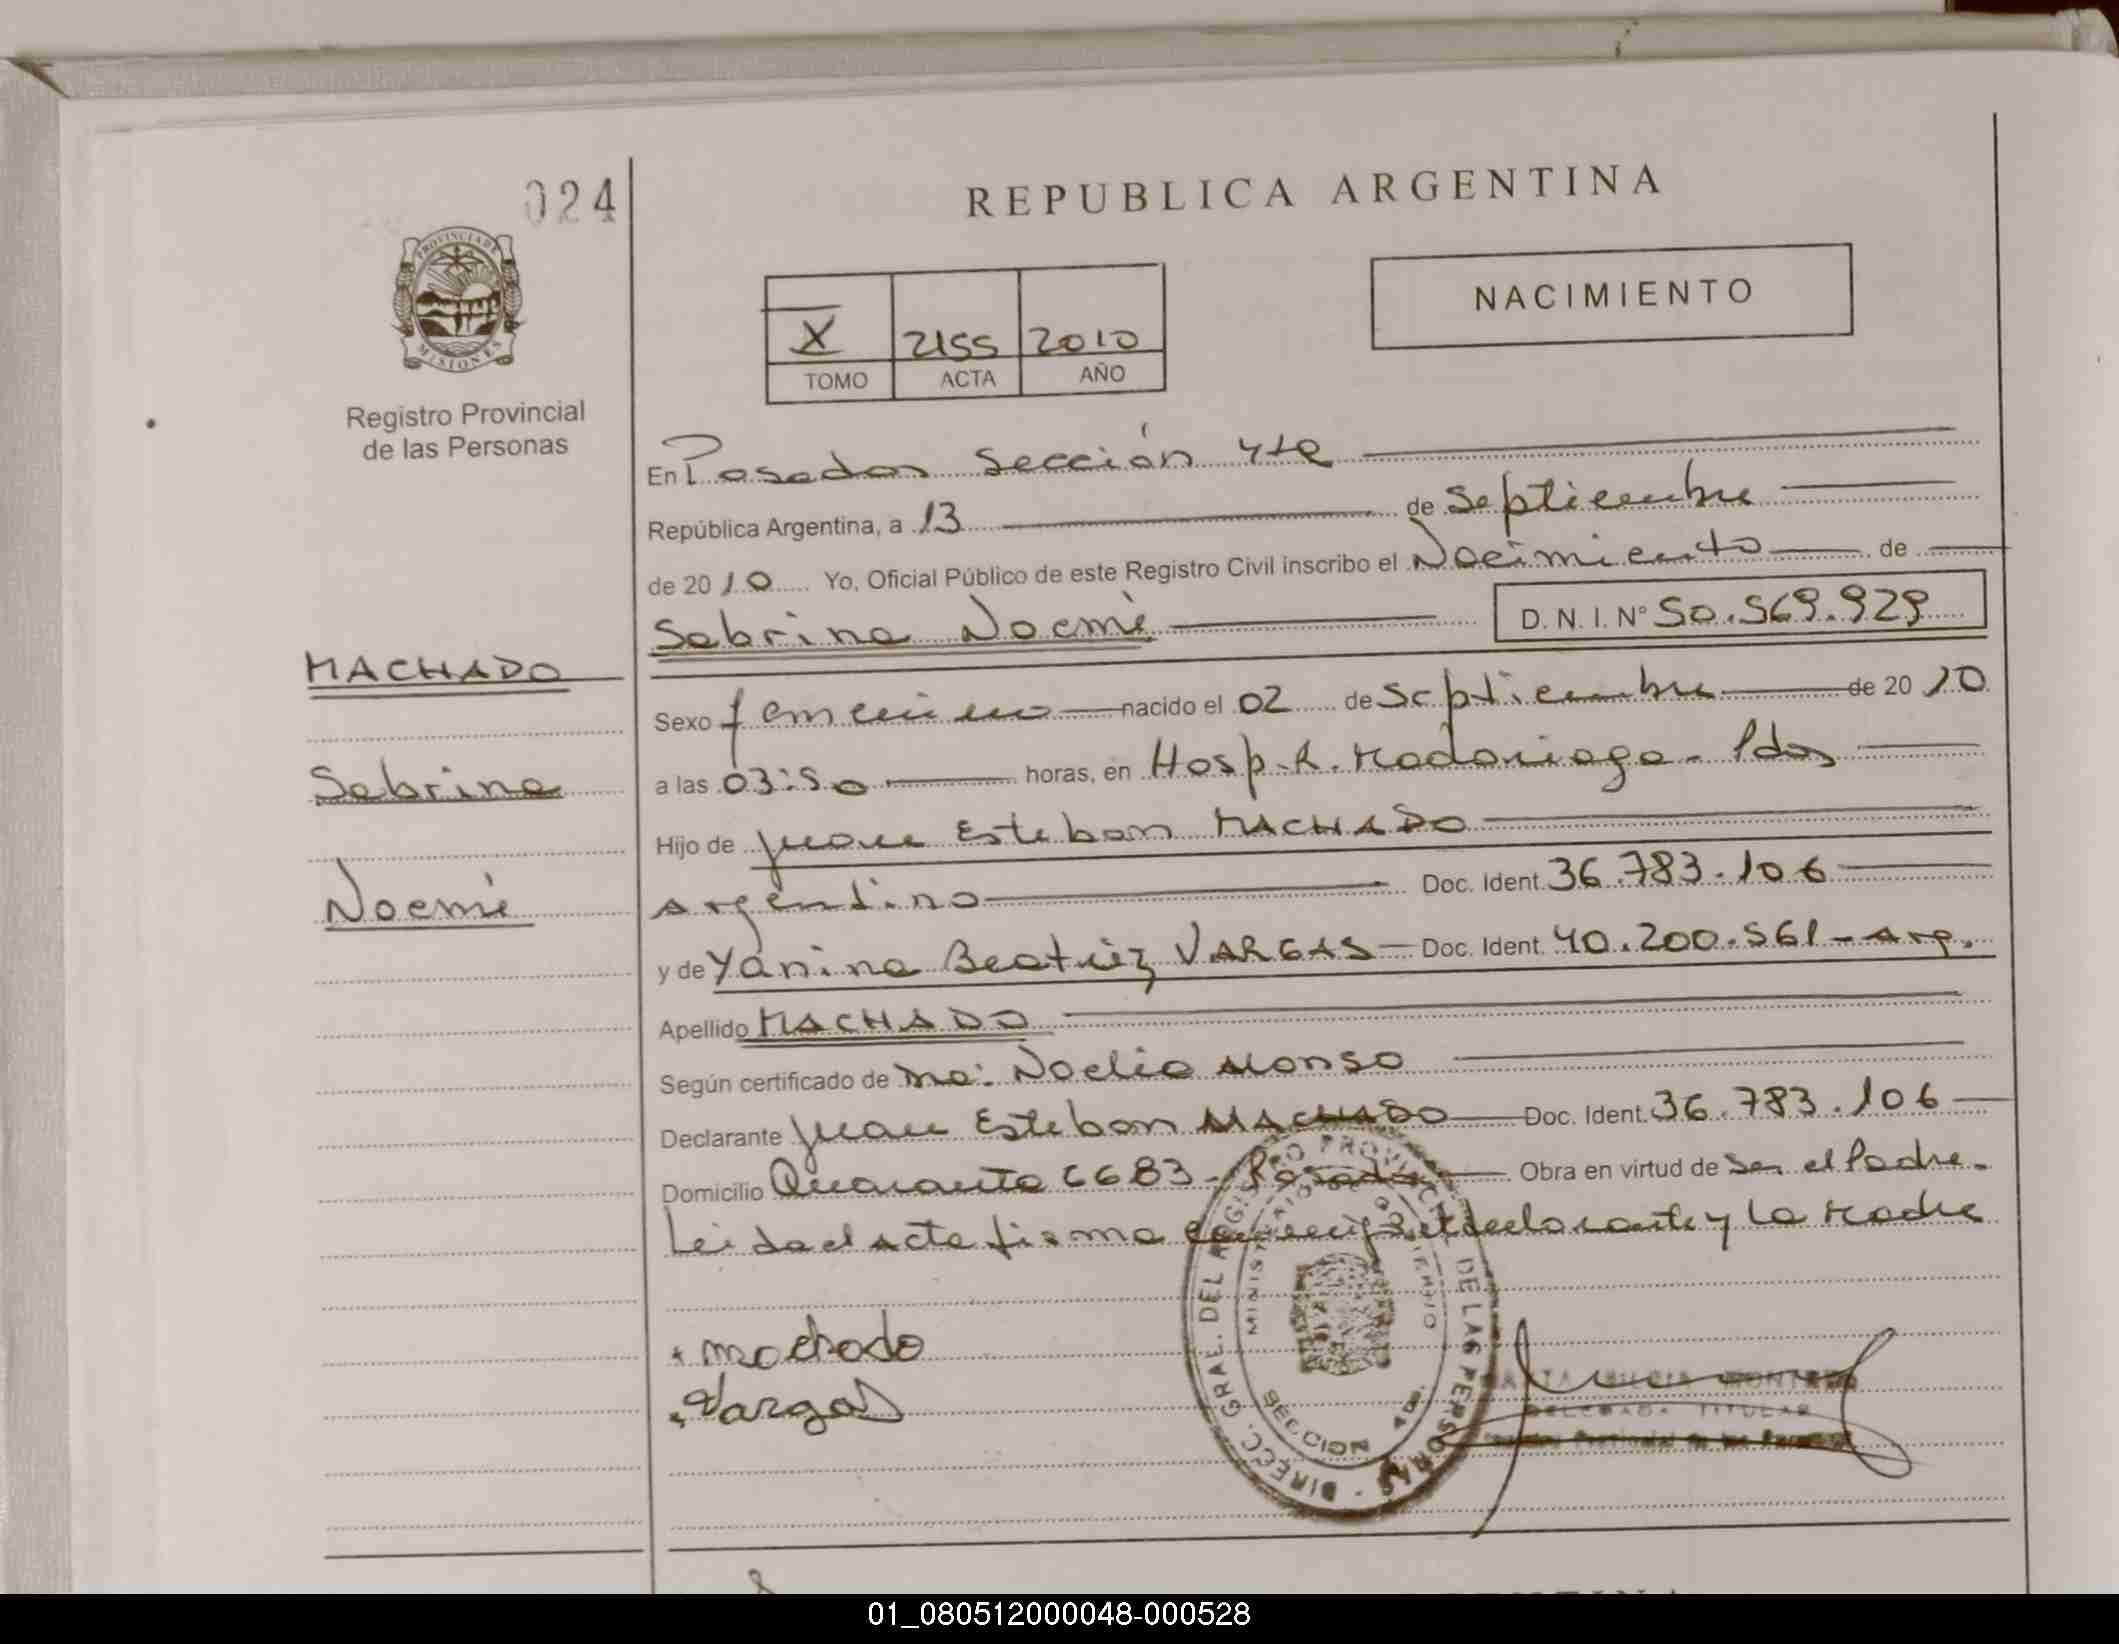 024
REPUBLICA ARGENTINA
PROVINCIA DE
MISIONES
Registro Provincial
de las Personas
NACIMIENTO
X 2155 2010
TOMO ACTA AÑO
En Posadas Sección 4ta
República Argentina, a 13 de Septiembre
de 2010 Yo, Oficial Público de este Registro Civil inscribo el Nacimiento de
Sabrina Noemí D.N.I. N° 50.569.929
MACHADO
Sabrina
Noemí
Sexo femenino nacido el 02 de Septiembre de 2010
a las 03:50 horas, en Hosp. R. Madariaga - Pdas
Hijo de Juan Esteban MACHADO
Argentino Doc. Ident. 36.783.106
y de Yanina Beatriz VARGAS Doc. Ident. 40.200.561 - Arg.
Apellido MACHADO
Según certificado de Noelia Alonso
Declarante Juan Esteban MACHADO Doc. Ident. 36.783.106
Domicilio Quaranta 6683 - Posadas Obra en virtud de Ser el Padre.
Leida el Acta firma el declarante y La Madre
Machado
Vargas
DIREC. GRAL. DEL REGISTRO PROVINCIAL DE LAS PERSONAS
MINISTERIO DE GOBIERNO
SECCION 4a.
DELEGADA TITULAR
01_080512000048-000528